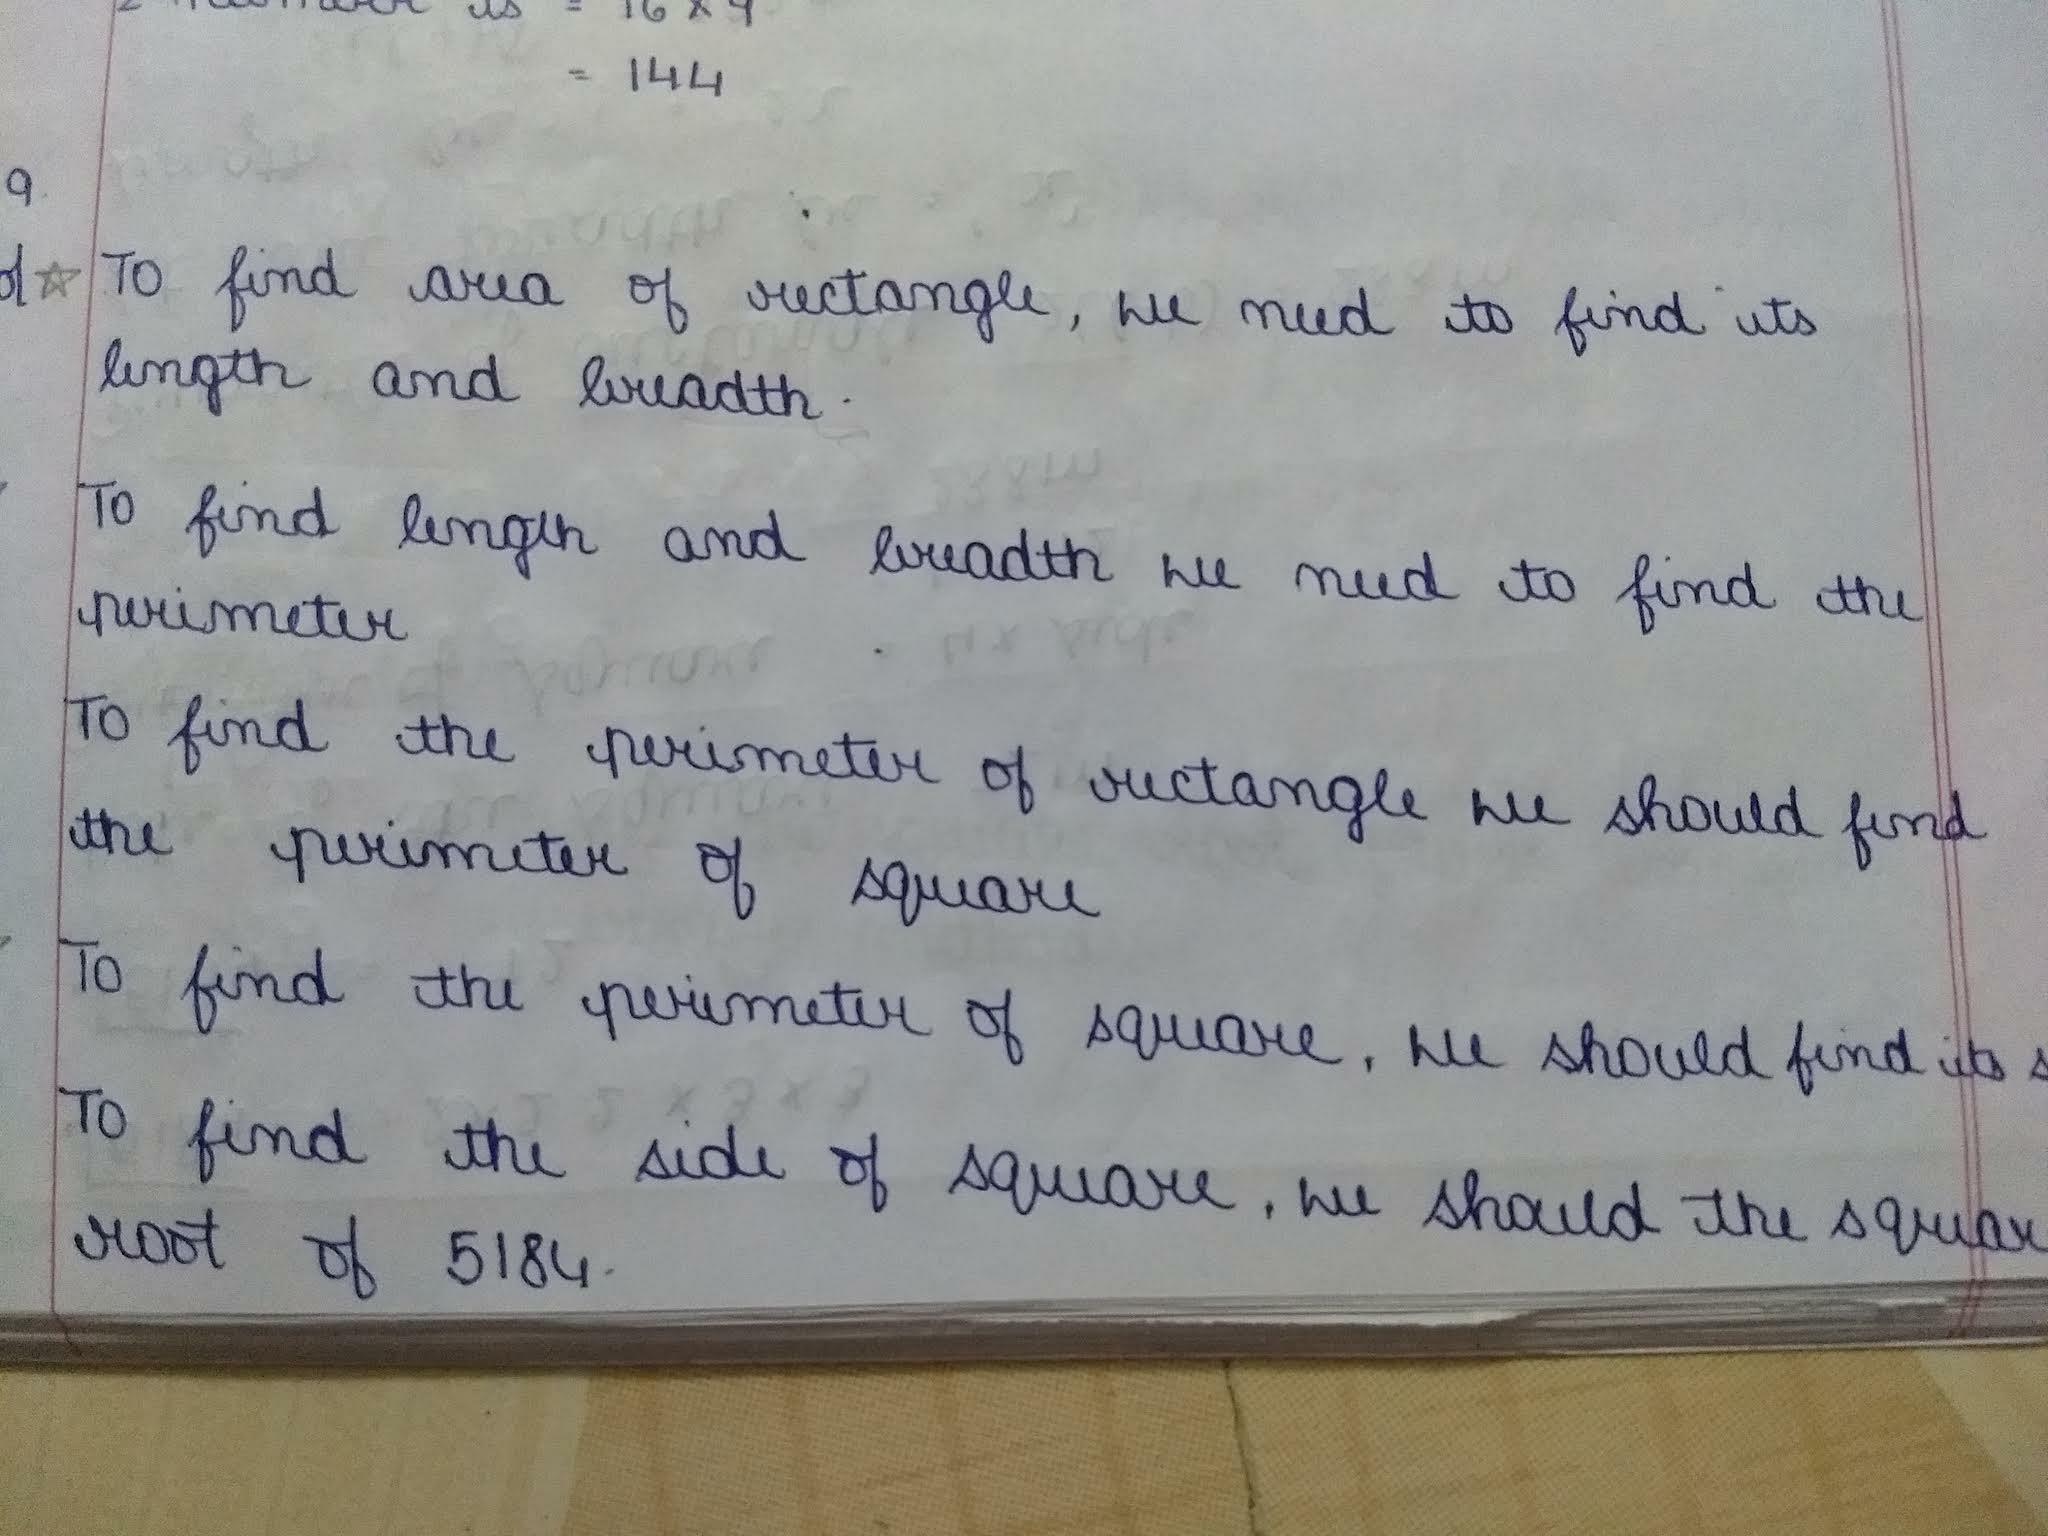 2 number is = 16 x 9
= 144
9.
To find area of rectangle, we need to find its
length and breadth.
To find length and breadth we need to find the
perimeter
To find the perimeter of rectangle we should find
the perimeter of square
To find the perimeter of square, we should find its s
To find the side of square, we should the squar
root of 5184.